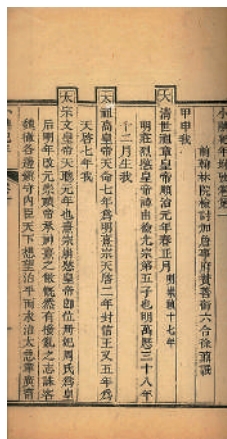 小腆紀年附考卷第一
前翰林院檢討加詹事府贊善銜六合徐鼒譔
甲申我
大清世祖章皇帝順治元年春正月明崇禎十七年
明莊烈愍皇帝諱由檢光宗第五子也明萬歷三十八年
十二月生我
太祖高皇帝天命七年爲明熹宗天啟二年封信王又五年爲
天啟七年我
太宗文皇帝天聰元年也熹宗崩愍皇帝卽位冊妃周氏爲皇
后明年改元崇禎帝承神熹之敝慨然有撥亂之志誅客
魏撤各邊鎮守內臣天下想望治平而求治太急